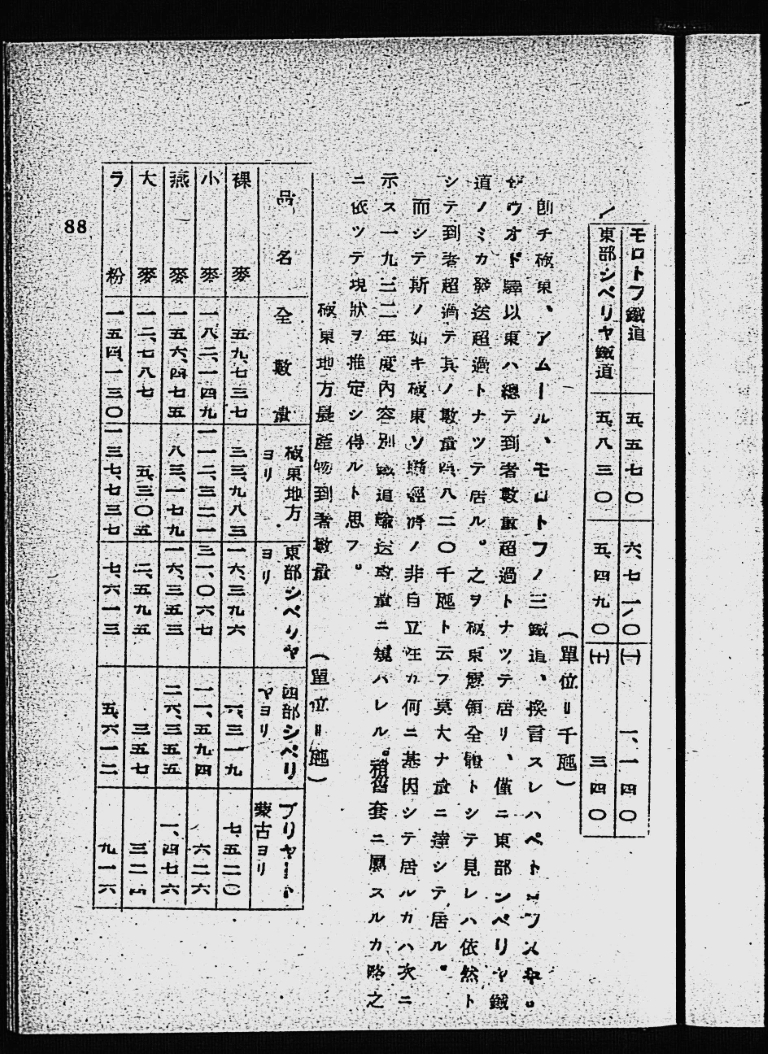 モロトフ鐵道 五、五七〇 六、七一〇 (一) 一、一四〇
東部シベリヤ鐵道 五、八三〇 五、四九〇 (十) 三四〇
(單位=千瓲)
卽チ極東、アムール、モロトフノ三鐵道、換言スレハペトロフスキー
ザウオド驛以東ハ總テ到着數量超過トナツテ居リ、僅ニ東部シベリヤ鐵
道ノミカ發送超過トナツテ居ル。之ヲ極東露領全體トシテ見レハ依然ト
シテ到着超過テ其ノ數量四八二〇千瓲ト云フ莫大ナ量ニ達シテ居ル。
而シテ斯ノ如キ極東ソ聯經濟ノ非自立性カ何ニ基因シテ居ルカハ次ニ
示ス一九三二年度內容別鐵道輸送數量ニ窺ハレル。稍舊套ニ屬スルカ略之
ニ依ツテ現狀ヲ推定シ得ルト思フ。
極東地方農產物到着數量 (單位=瓲)
品名 全數量 極東地方ヨリ 東部シベリヤヨリ 西部シベリヤヨリ ブリヤート蒙古ヨリ
裸麥 五九、七三七 三三、九八三 一六、三九六 六、三一九 七、五二〇
小麥 一八二、一四九 一一二、三二一 三一、〇六七 一一、五九四 六二六
燕麥 一五六、四七五 八三、一七九 一六、三五三 二六、三五五 一、四七六
大麥 一二、七八七 五、三〇五 二、五九五 三五七
ラ粉 一五四、一三〇 一三七、七三七 七、六一三 五、六一二 九一六
88